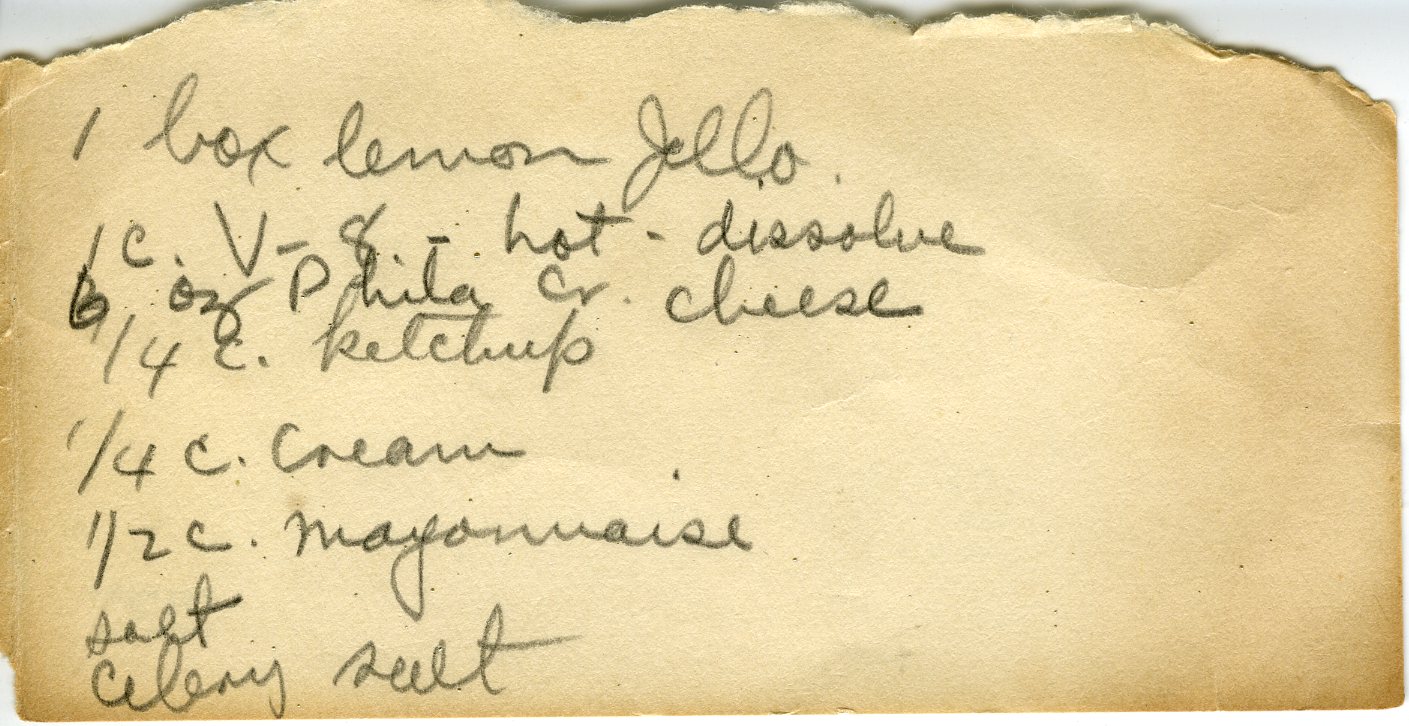 1 box lemon Jello.
1 c. V-8 - hot - dissolve
6 oz Phila Cr. cheese
1/4 c. ketchup
1/4 c. cream
1/2 c. mayonnaise
salt
celery salt